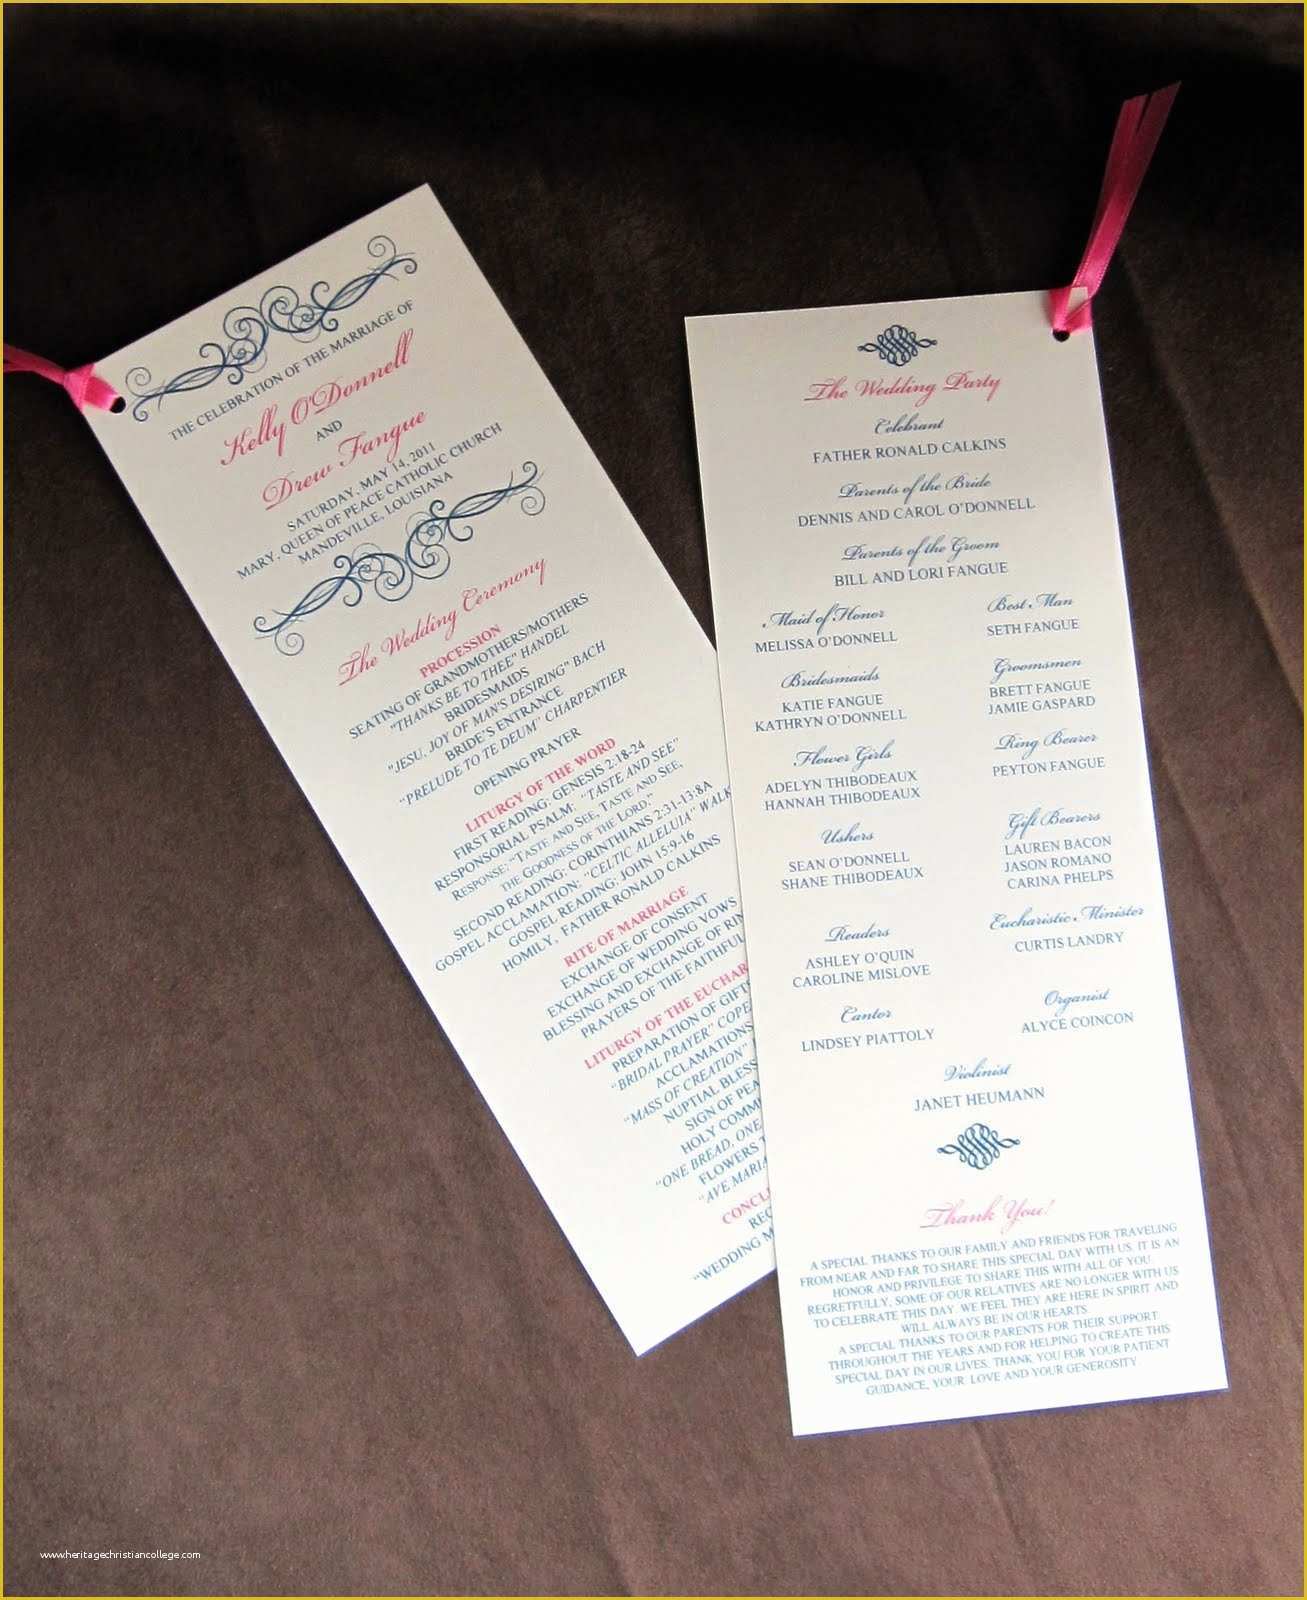 THE CELEBRATION OF THE MARRIAGE OF
Kelly O'Donnell
AND
Drew Fangue
SATURDAY, MAY 14, 2011
MARY, QUEEN OF PEACE CATHOLIC CHURCH
MANDEVILLE, LOUISIANA
The Wedding Ceremony
PROCESSION
SEATING OF GRANDMOTHERS/MOTHERS
"THANKS BE TO THEE" HANDEL
BRIDESMAIDS
"JESU, JOY OF MAN'S DESIRING" BACH
BRIDE'S ENTRANCE
"PRELUDE TO TE DEUM" CHARPENTIER
OPENING PRAYER
LITURGY OF THE WORD
FIRST READING: GENESIS 2:18-24
RESPONSORIAL PSALM: "TASTE AND SEE"
RESPONSE: "TASTE AND SEE, TASTE AND SEE,
THE GOODNESS OF THE LORD."
SECOND READING: CORINTHIANS 2:31-13:8A
GOSPEL ACCLAMATION: "CELTIC ALLELUIA" WALK
GOSPEL READING: JOHN 15:9-16
HOMILY, FATHER RONALD CALKINS
RITE OF MARRIAGE
EXCHANGE OF CONSENT
EXCHANGE OF WEDDING VOWS
BLESSING AND EXCHANGE OF RIN
PRAYERS OF THE FAITHFUL
LITURGY OF THE EUCHAR
PREPARATION OF GIFTS
"BRIDAL PRAYER" COPE
ACCLAMATIONS
"MASS OF CREATION"
NUPTIAL BLESS
SIGN OF PEA
HOLY COMM
"ONE BREAD, ONE
FLOWERS T
"AVE MARIA
CONCL
REC
"WEDDING M
The Wedding Party
Celebrant
FATHER RONALD CALKINS
Parents of the Bride
DENNIS AND CAROL O'DONNELL
Parents of the Groom
BILL AND LORI FANGUE
Maid of Honor
MELISSA O'DONNELL
Best Man
SETH FANGUE
Bridesmaids
KATIE FANGUE
KATHRYN O'DONNELL
Groomsmen
BRETT FANGUE
JAMIE GASPARD
Flower Girls
ADELYN THIBODEAUX
HANNAH THIBODEAUX
Ring Bearer
PEYTON FANGUE
Ushers
SEAN O'DONNELL
SHANE THIBODEAUX
Gift Bearers
LAUREN BACON
JASON ROMANO
CARINA PHELPS
Readers
ASHLEY O'QUIN
CAROLINE MISLOVE
Eucharistic Minister
CURTIS LANDRY
Cantor
LINDSEY PIATTOLY
Organist
ALYCE COINCON
Violinist
JANET HEUMANN
Thank You!
A SPECIAL THANKS TO OUR FAMILY AND FRIENDS FOR TRAVELING
FROM NEAR AND FAR TO SHARE THIS SPECIAL DAY WITH US. IT IS AN
HONOR AND PRIVILEGE TO SHARE THIS WITH ALL OF YOU.
REGRETFULLY, SOME OF OUR RELATIVES ARE NO LONGER WITH US
TO CELEBRATE THIS DAY. WE FEEL THEY ARE HERE IN SPIRIT AND
WILL ALWAYS BE IN OUR HEARTS.
A SPECIAL THANKS TO OUR PARENTS FOR THEIR SUPPORT
THROUGHOUT THE YEARS AND FOR HELPING TO CREATE THIS
SPECIAL DAY IN OUR LIVES. THANK YOU FOR YOUR PATIENT
GUIDANCE, YOUR LOVE AND YOUR GENEROSITY
www.heritagechristiancollege.com